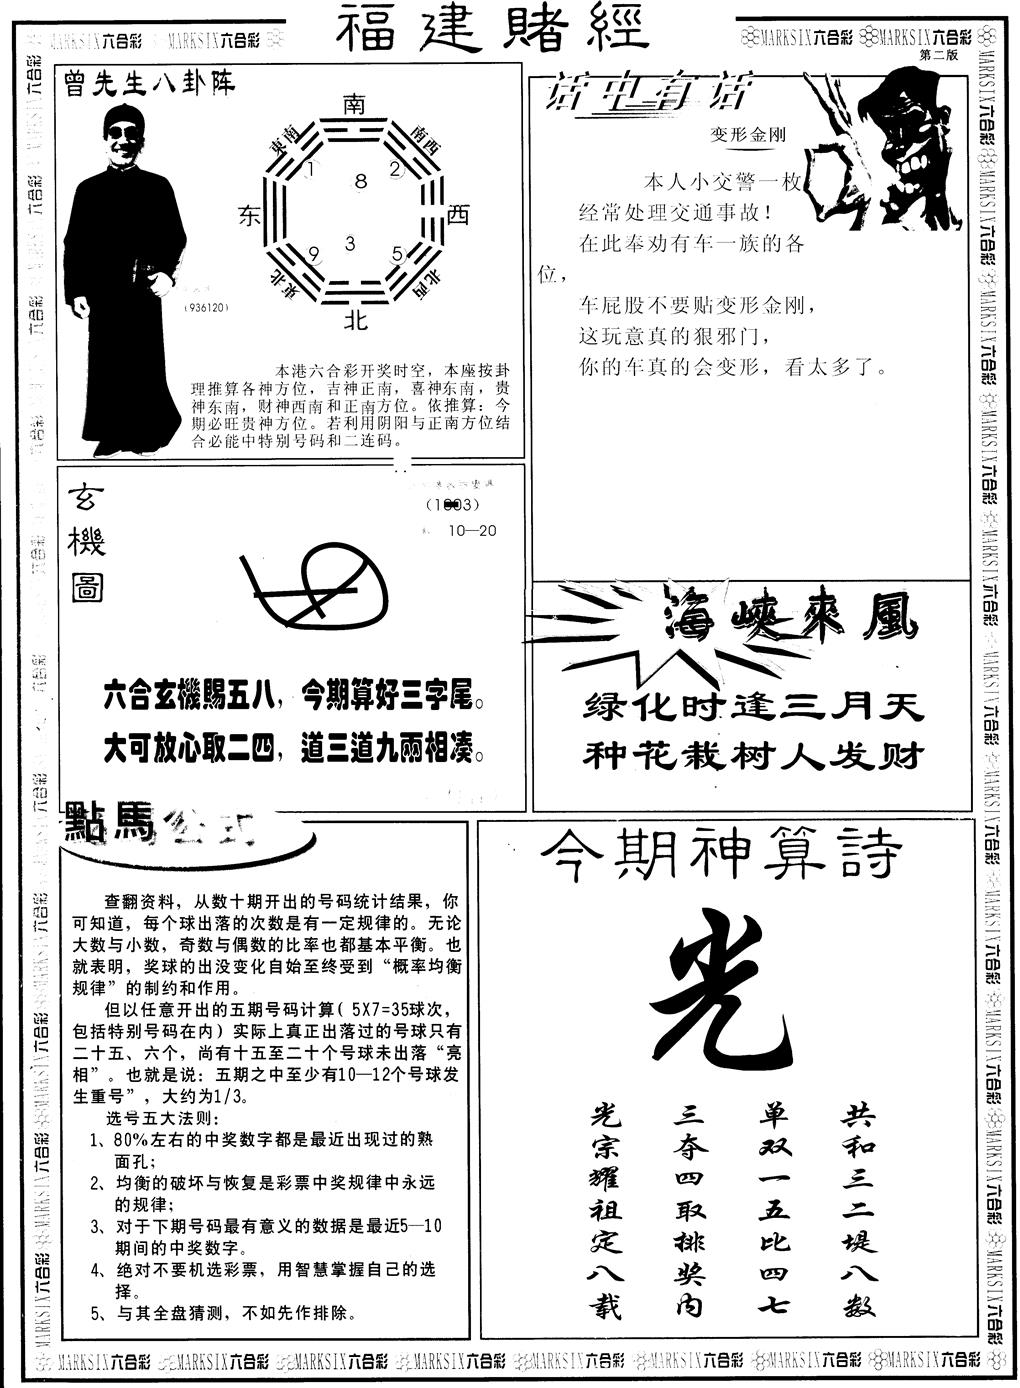 福建賭經
MARKSIX六合彩 MARKSIX六合彩
MARKSIX六合彩 MARKSIX六合彩
第二版
曾先生八卦阵
南
東南 南西
1 8 2
东 西
9 3 5
東北 北西
北
(936120)
本港六合彩开奖时空，本座按卦
理推算各神方位，吉神正南，喜神东南，贵
神东南，财神西南和正南方位。依推算：今
期必旺贵神方位。若利用阴阳与正南方位结
合必能中特别号码和二连码。
话中有话
变形金刚
本人小交警一枚
经常处理交通事故！
在此奉劝有车一族的各
位，
车屁股不要贴变形金刚，
这玩意真的狠邪门，
你的车真的会变形，看太多了。
玄機圖
10—20
六合玄機賜五八，今期算好三字尾。
大可放心取二四，道三道九兩相凑。
海峽來風
绿化时逢三月天
种花栽树人发财
點馬公式
查翻资料，从数十期开出的号码统计结果，你
可知道，每个球出落的次数是有一定规律的。无论
大数与小数，奇数与偶数的比率也都基本平衡。也
就表明，奖球的出没变化自始至终受到“概率均衡
规律”的制约和作用。
但以任意开出的五期号码计算( 5X7=35球次，
包括特别号码在内) 实际上真正出落过的号球只有
二十五、六个，尚有十五至二十个号球未出落“亮
相”。也就是说：五期之中至少有10—12个号球发
生重号”，大约为1/3。
选号五大法则：
1、80%左右的中奖数字都是最近出现过的熟
面孔；
2、均衡的破坏与恢复是彩票中奖规律中永远
的规律；
3、对于下期号码最有意义的数据是最近5—10
期间的中奖数字。
4、绝对不要机选彩票，用智慧掌握自己的选
择。
5、与其全盘猜测，不如先作排除。
今期神算詩
光
光宗耀祖定八载
三夺四取排奖内
单双一五比四七
共和三二堤八数
MARKSIX六合彩 MARKSIX六合彩 MARKSIX六合彩 MARKSIX六合彩 MARKSIX六合彩 MARKSIX六合彩 MARKSIX六合彩 MARKSIX六合彩